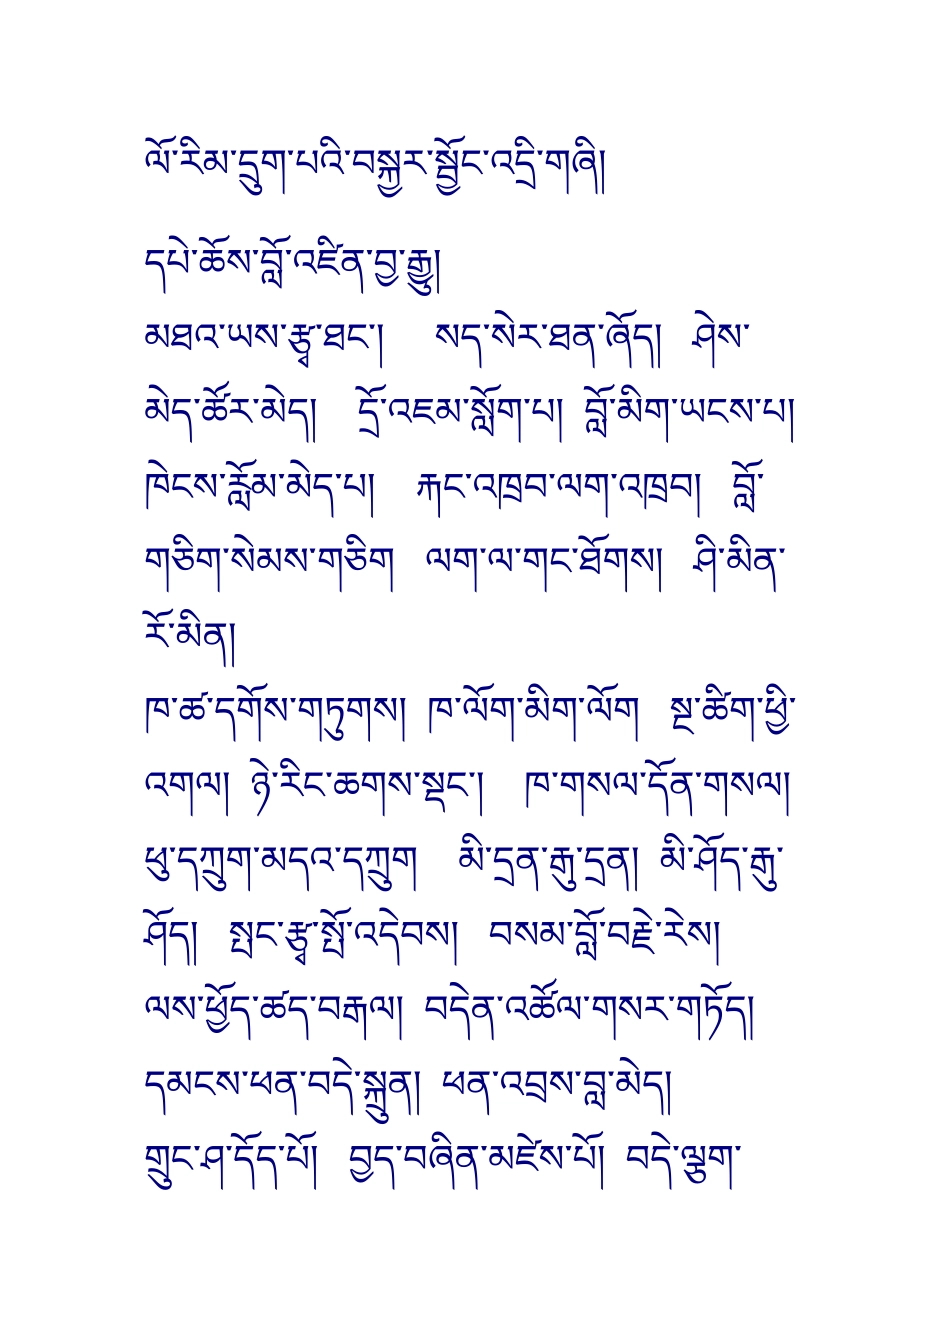 ལོ་རིམ་དྲུག་པའི་བསྐྱར་སྦྱོང་འདྲི་གཞི།
དཔེ་ཆོས་བློ་འཛིན་བྱ་རྒྱུ།
མཐའ་ཡས་རྩྭ་ཐང་། སད་སེར་ཐན་ཞོད། ཤེས་
མེད་ཚོར་མེད། དྲོ་འཇམ་སློག་པ། བློ་མིག་ཡངས་པ།
ཁེངས་རློམ་མེད་པ། རྐང་འཁྲབ་ལག་འཁྲབ། བློ་
གཅིག་སེམས་གཅིག ལག་ལ་གང་ཐོགས། ཤི་མིན་
རོ་མིན།
ཁ་ཚ་དགོས་གཏུགས། ཁ་ལོག་མིག་ལོག སྔ་ཚིག་ཕྱི་
འགལ། ཉེ་རིང་ཆགས་སྡང་། ཁ་གསལ་དོན་གསལ།
ཕུ་དཀྲུག་མདའ་དཀྲུག མི་དྲན་རྒུ་དྲན། མི་ཤོད་རྒུ་
ཤོད། སྤང་རྩྭ་སྤོ་འདེབས། བསམ་བློ་བརྗེ་རེས།
ལས་ཕྱོད་ཚད་བརྒལ། བདེན་འཚོལ་གསར་གཏོད།
དམངས་ཕན་བདེ་སྐྲུན། ཕན་འབྲས་བླ་མེད།
གྲུང་ཤ་དོད་པོ། བྱད་བཞིན་མཛེས་པོ། བདེ་ལྕག་